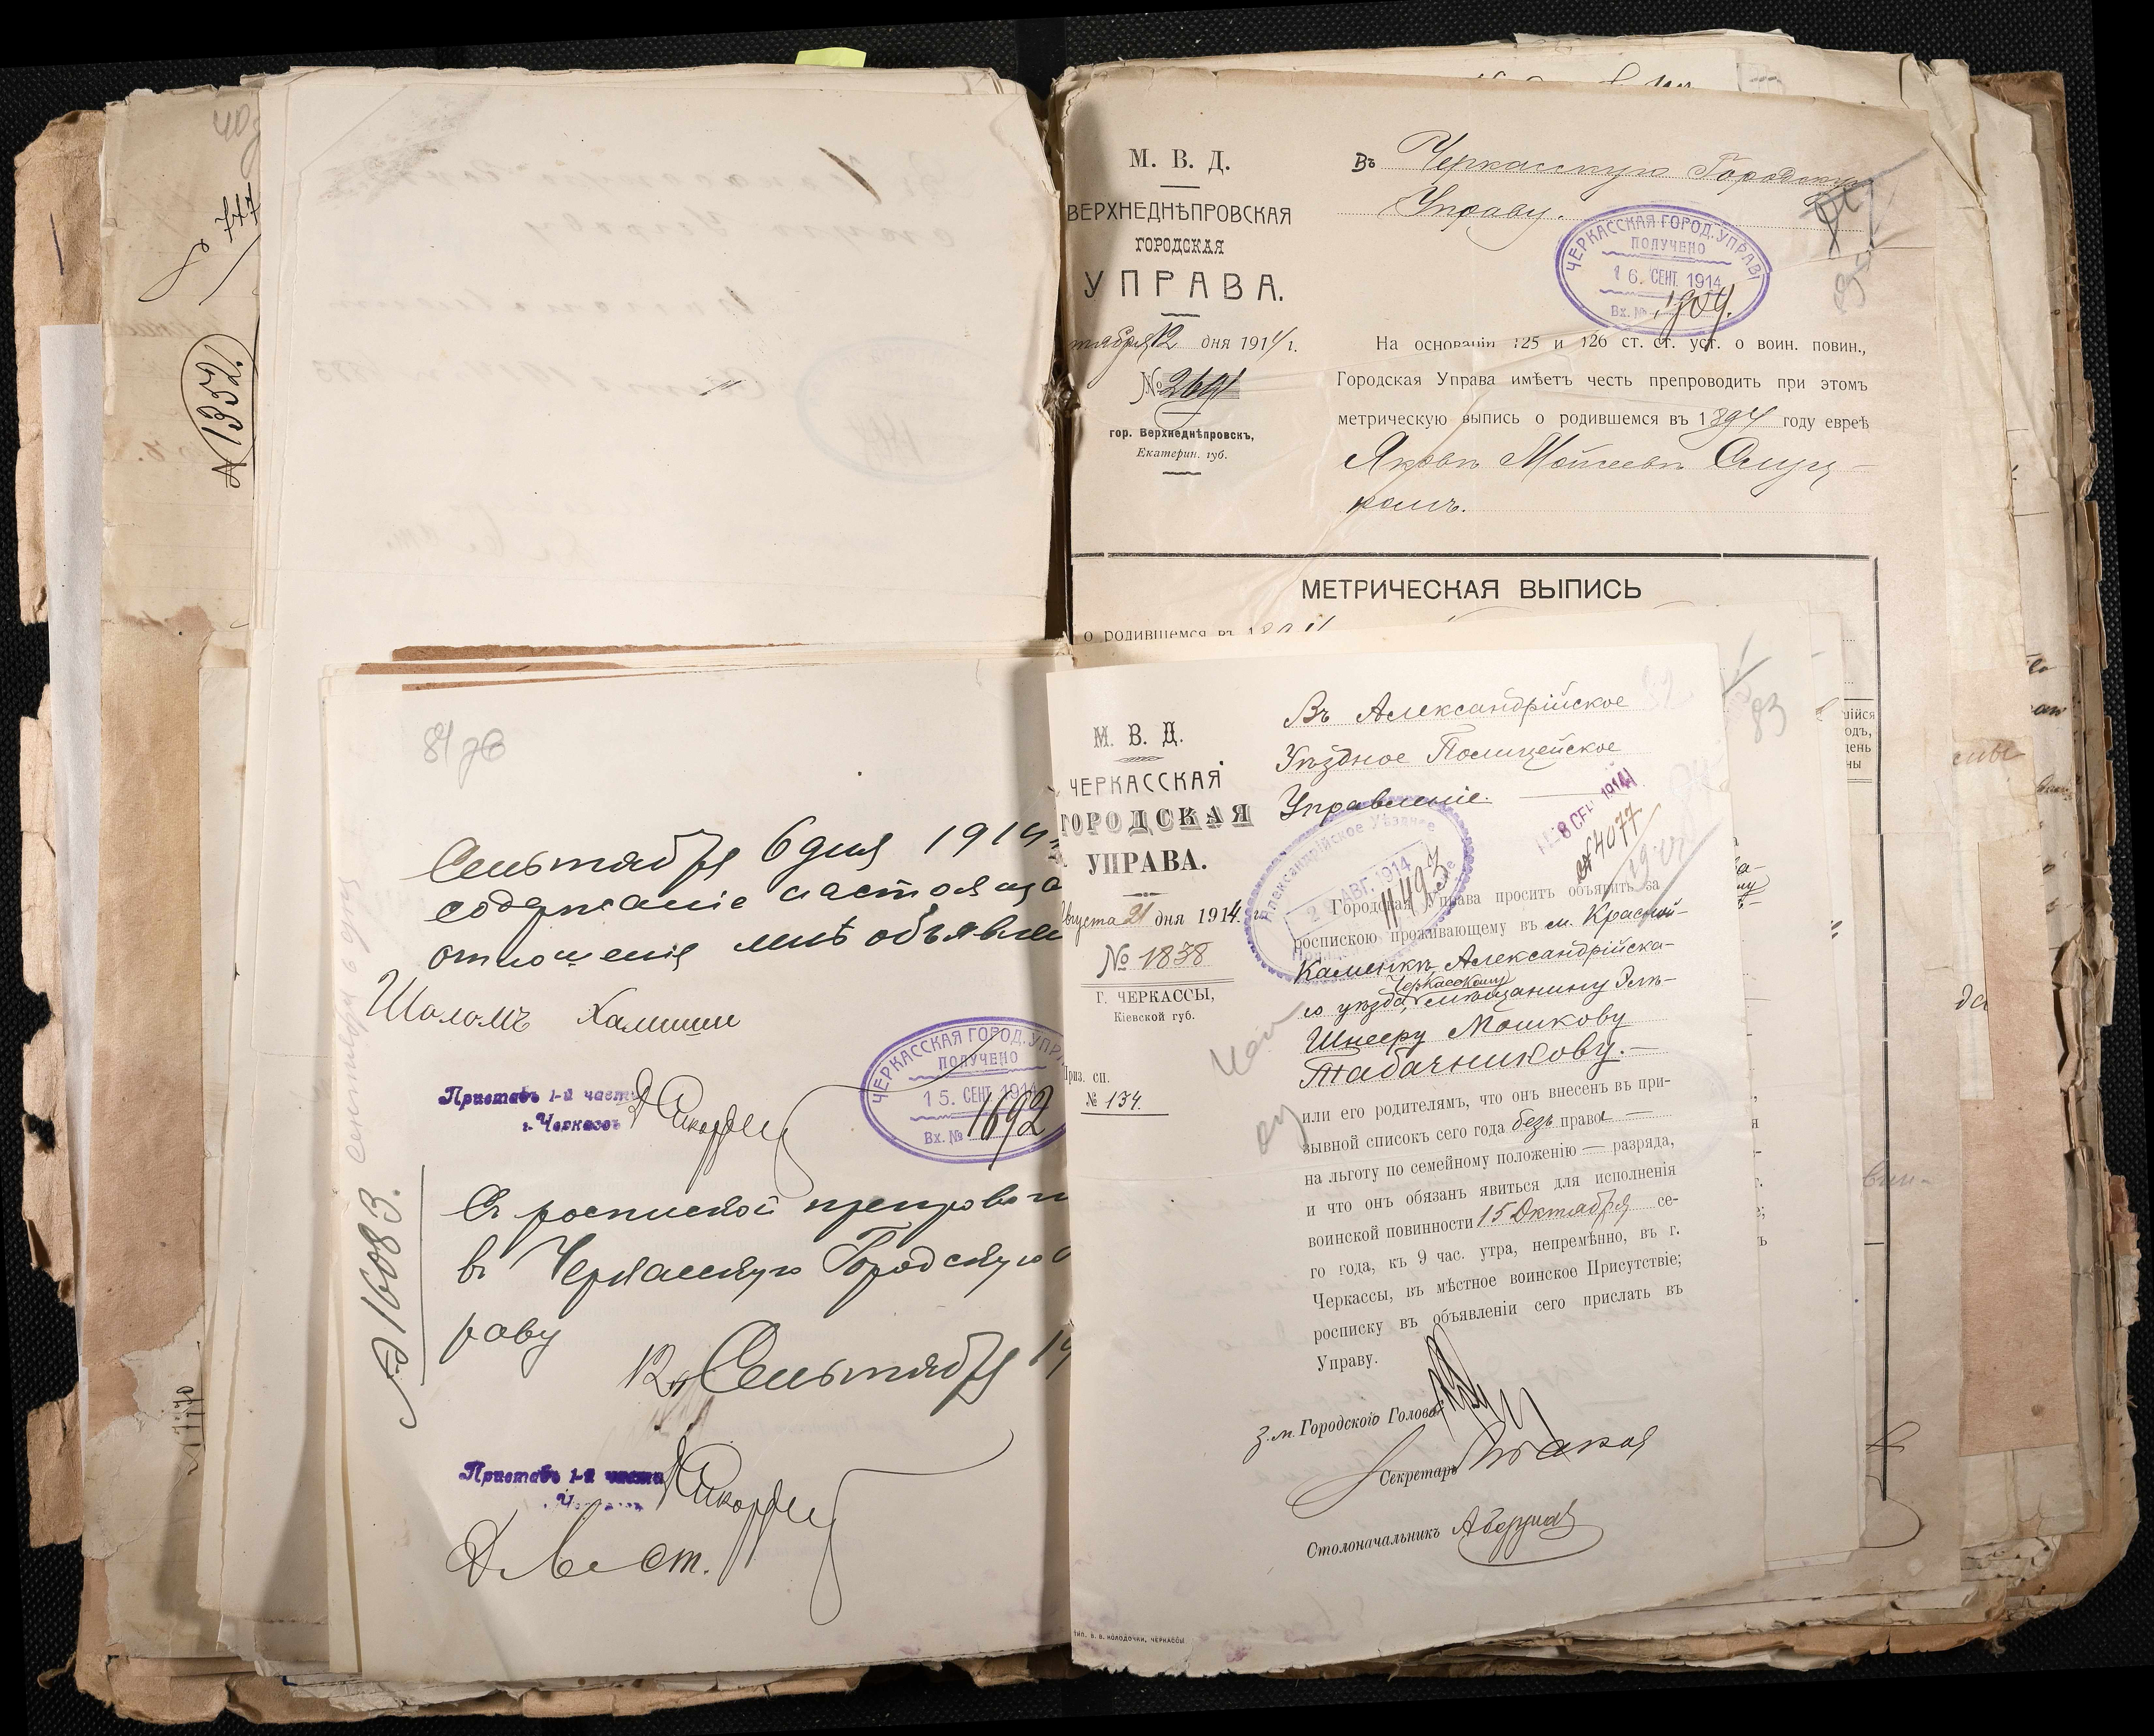 № 1352.
84 об
Сентября 6 дня 1914
содержание настояща
отношения мне объявле
Шоломъ Халишин
Приставъ 1-й части
г. Черкассъ
ЧЕРКАССКАЯ ГОРОД. УПР
ПОЛУЧЕНО
15. СЕНТ. 1914
Вх. № 1692
№ 16083.
С роспиской препрово
в Черкасскую Городскую
раву
12 Сентября 14
Приставъ 1-й части
М. В. Д.
ВЕРХНЕДНѢПРОВСКАЯ
ГОРОДСКАЯ
УПРАВА.
тября 12 дня 1914 г.
№ 2691
гор. Верхнеднѣпровскъ,
Екатерин. губ.
Въ Черкасскую Городскую
Управу.
ЧЕРКАССКАЯ ГОРОД. УПРАВ
ПОЛУЧЕНО
16. СЕНТ. 1914
Вх. № 1704.
На основаніи 125 и 126 ст. ст. уст. о воин. повин.,
Городская Управа имѣетъ честь препроводить при этомъ
метрическую выпись о родившемся въ 1894 году евреѣ
Яковѣ Мойсеевѣ Слуц-
комъ.
МЕТРИЧЕСКАЯ ВЫПИСЬ
о родившемся въ 1894
83
М. В. Д.
ЧЕРКАССКАЯ
ГОРОДСКАЯ
УПРАВА.
Августа 21 дня 1914 г.
№ 1838
Г. ЧЕРКАССЫ,
Кіевской губ.
Приз. сп.
№ 134.
Въ Александрійское
Уѣздное Полицейское
Управленіе.
Александрійское Уѣздное
АВГ. 1914
11493
8 СЕН 1914
№ 4077
Городская Управа проситъ объявить за
роспискою проживающему въ м. Красной-
Каменкѣ Александрійска-
го уѣзда, Черкасскому мѣщанину Зель-
Шнееру Мошкову
Табачникову.—
или его родителямъ, что онъ внесенъ въ при-
зывной списокъ сего года безъ права —
на льготу по семейному положенію — разряда,
и что онъ обязанъ явиться для исполненія
воинской повинности 15 Октября се-
го года, къ 9 час. утра, непремѣнно, въ г.
Черкассы, въ мѣстное воинское Присутствіе;
росписку въ объявленіи сего прислать въ
Управу.
З. м. Городского Головы
Секретарь
Столоначальникъ
ТИП. В. В. КОЛОДОЧКИ, ЧЕРКАССЫ